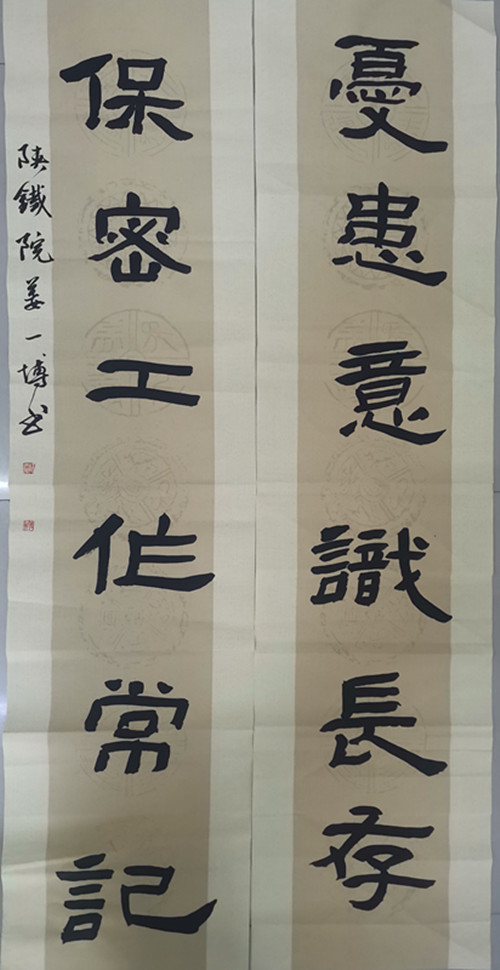 憂患意識長存
保密工作常記
陝鐵院姜一博书